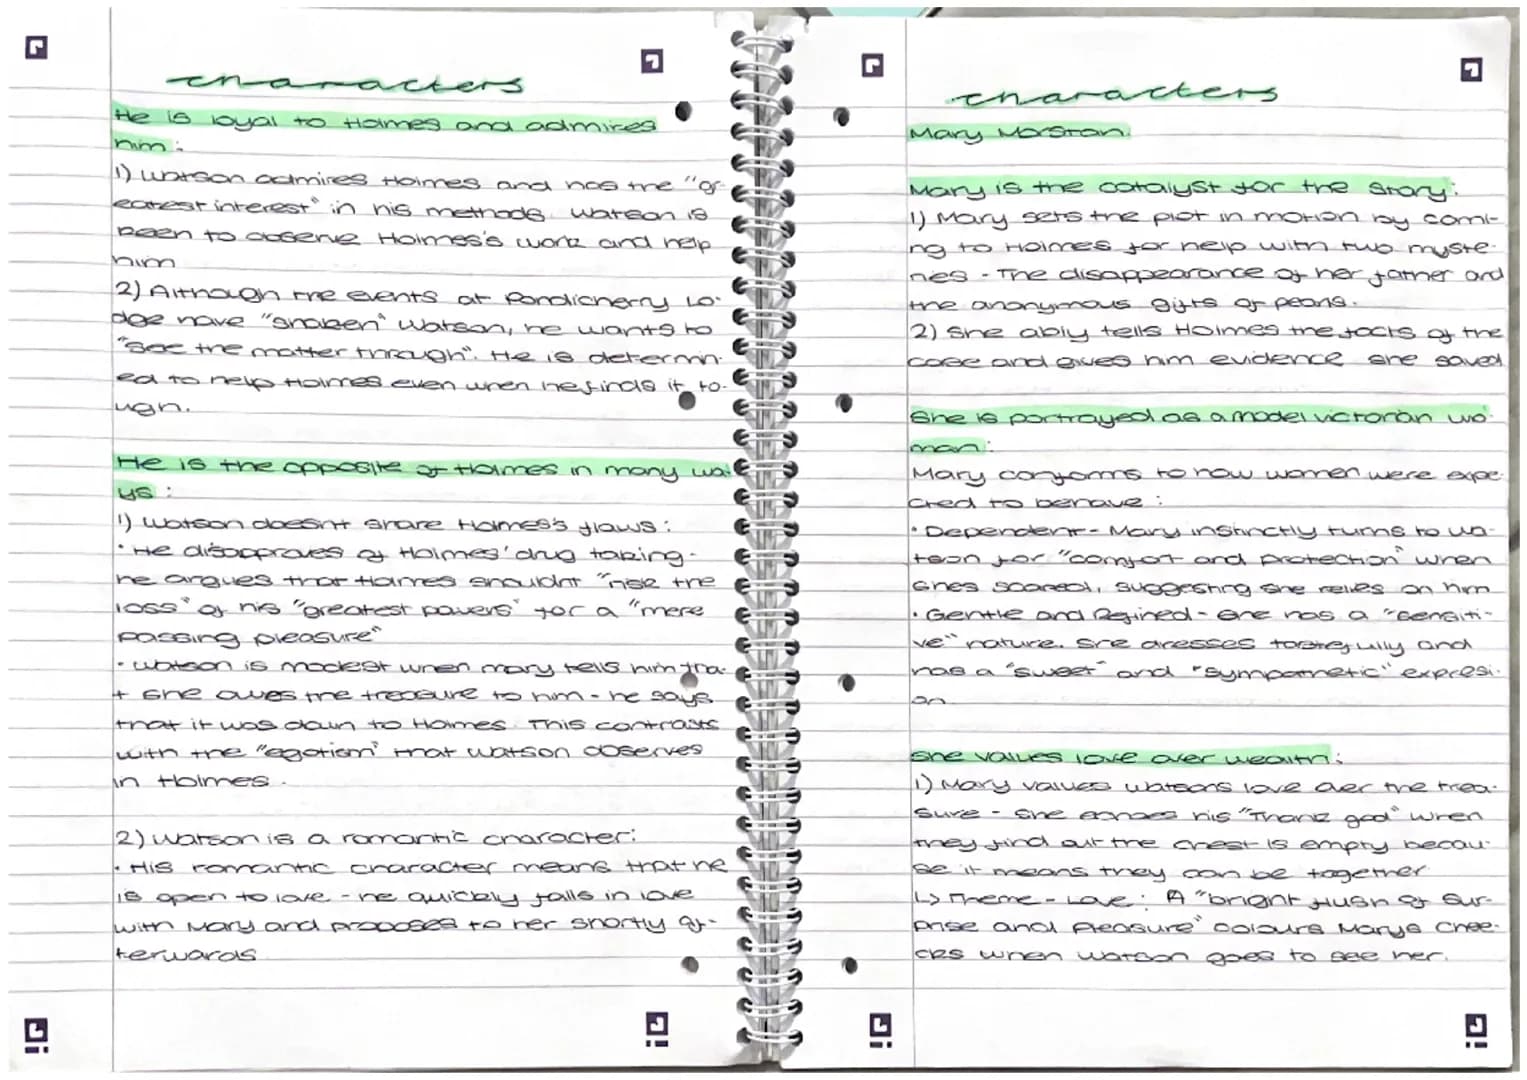 characters
He is loyal to Holmes and admires
him:
1) Watson admires Holmes and has the "gr-
eatest interest" in his methods. Watson is
keen to observe Holmes's work and help
him
2) Although the events at Pondicherry Lo-
dge have "shaken" Watson, he wants to
"see the matter through". He is determin-
ed to help Holmes even when he finds it to-
ugh.
He is the opposite of Holmes in many wa-
ys:
1) Watson doesnt share Holmes's flaws:
• He disapproves of Holmes' drug taking -
he argues that Holmes shouldnt "risk the
loss" of his "greatest powers" for a "mere
passing pleasure"
• Watson is modest when mary tells him tha-
t she owes the treasure to him - he says
that it was down to Holmes. This contrasts
with the "egotism" that Watson observes
in Holmes.
2) Watson is a romantic character:
• His romantic character means that he
is open to love - he quickly falls in love
with Mary and proposes to her shortly af-
terwards
characters
Mary Morstan.
Mary is the catalyst for the story:
1) Mary sets the plot in motion by comi-
ng to Holmes for help with two myste-
ries - The disappearance of her father and
the anonymous gifts of pearls.
2) She ably tells Holmes the facts of the
case and gives him evidence she saved
She is portrayed as a model victorian wo-
man:
Mary conforms to how women were expe-
cted to behave:
• Dependent - Mary instinctly turns to wa-
tson for "comfort and protection" when
shes scared, suggesting she relies on him
• Gentle and Refined - she has a "sensiti-
ve" nature. She dresses tastefully and
has a "sweet" and "sympathetic" expressi-
on
She values love over wealth:
1) Mary values watsons love over the trea-
sure - she echoes his "Thank god" when
they find out the chest is empty becau-
se it means they can be together
↳ Theme - Love: A "bright flush of sur-
prise and pleasure" colours Marys chee-
cks when watson goes to see her.